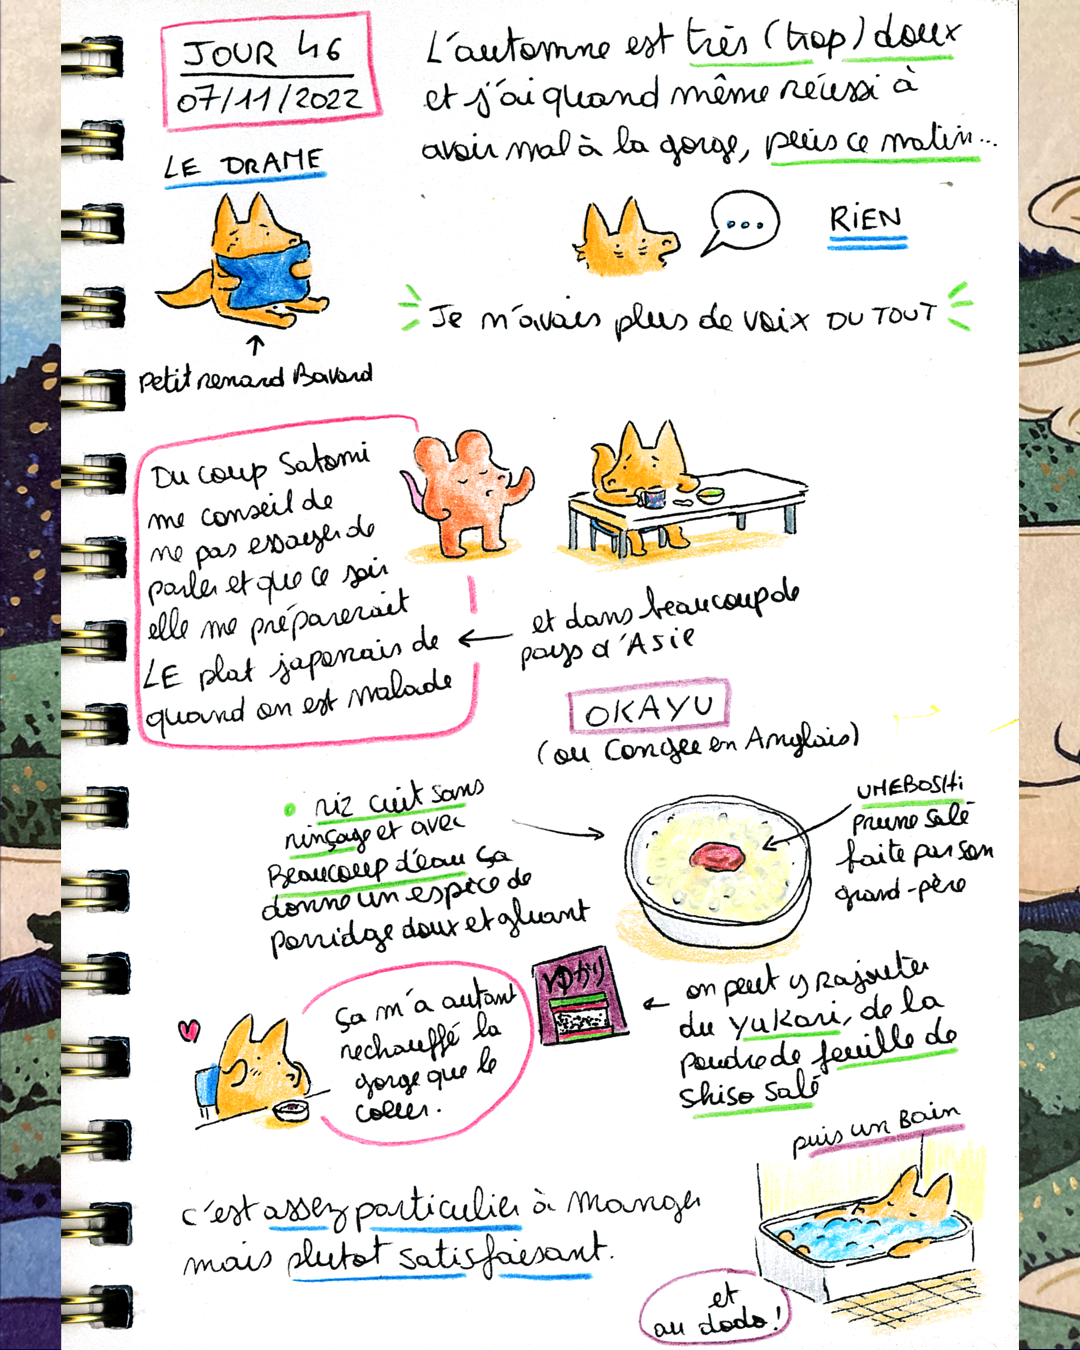 JOUR 46
07/11/2022
L'automne est très (trop) doux
et j'ai quand même réussi à
avoir mal à la gorge, puis ce matin...
LE DRAME
...
RiEN
Je n'avais plus de voix DU TOUT
petit renard Bavard
Du coup Satomi
me conseil de
ne pas essayer de
parler et que ce soir
elle me préparerait
LE plat japonais de
quand on est malade
et dans beaucoup de
pays d'Asie
OKAYU
(ou Congee en Anglais)
riz cuit sans
rinçage et avec
Beaucoup d'eau ça
donne un espèce de
porridge doux et gluant
UMEBOSHi
prune salé
faite par son
grand-père
ゆかり
on peut y rajouter
du yukari, de la
poudre de feuille de
shiso salé
ça m'a autant
rechauffé la
gorge que le
coeur.
puis un Bain
c'est assez particulier à manger
mais plutot satisfaisant.
et
au dodo!